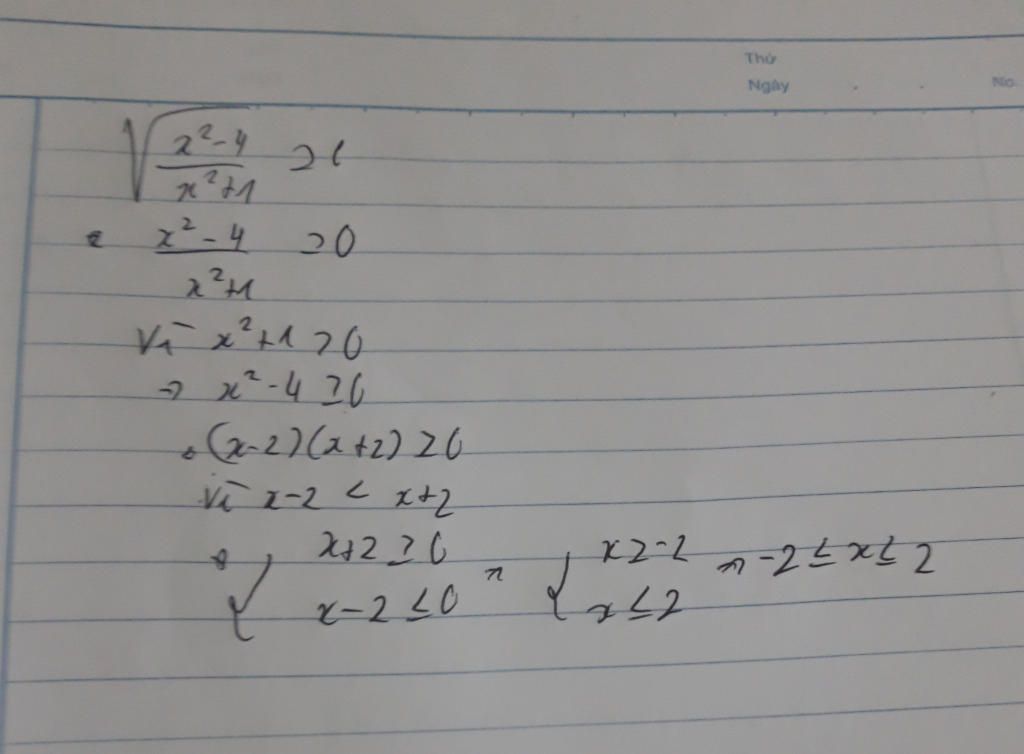 Thứ
Ngày No.
√((x²-4)/(x²+1)) >
(x²-4)/(x²+1) >0
Vì x²+1 >0
→ x²-4 ≥0
(x-2)(x+2) ≥0
Vì x-2 < x+2
{ x+2 ≥0 { x≥-2 -2 ≤ x ≤ 2
x-2 ≤0 x≤2